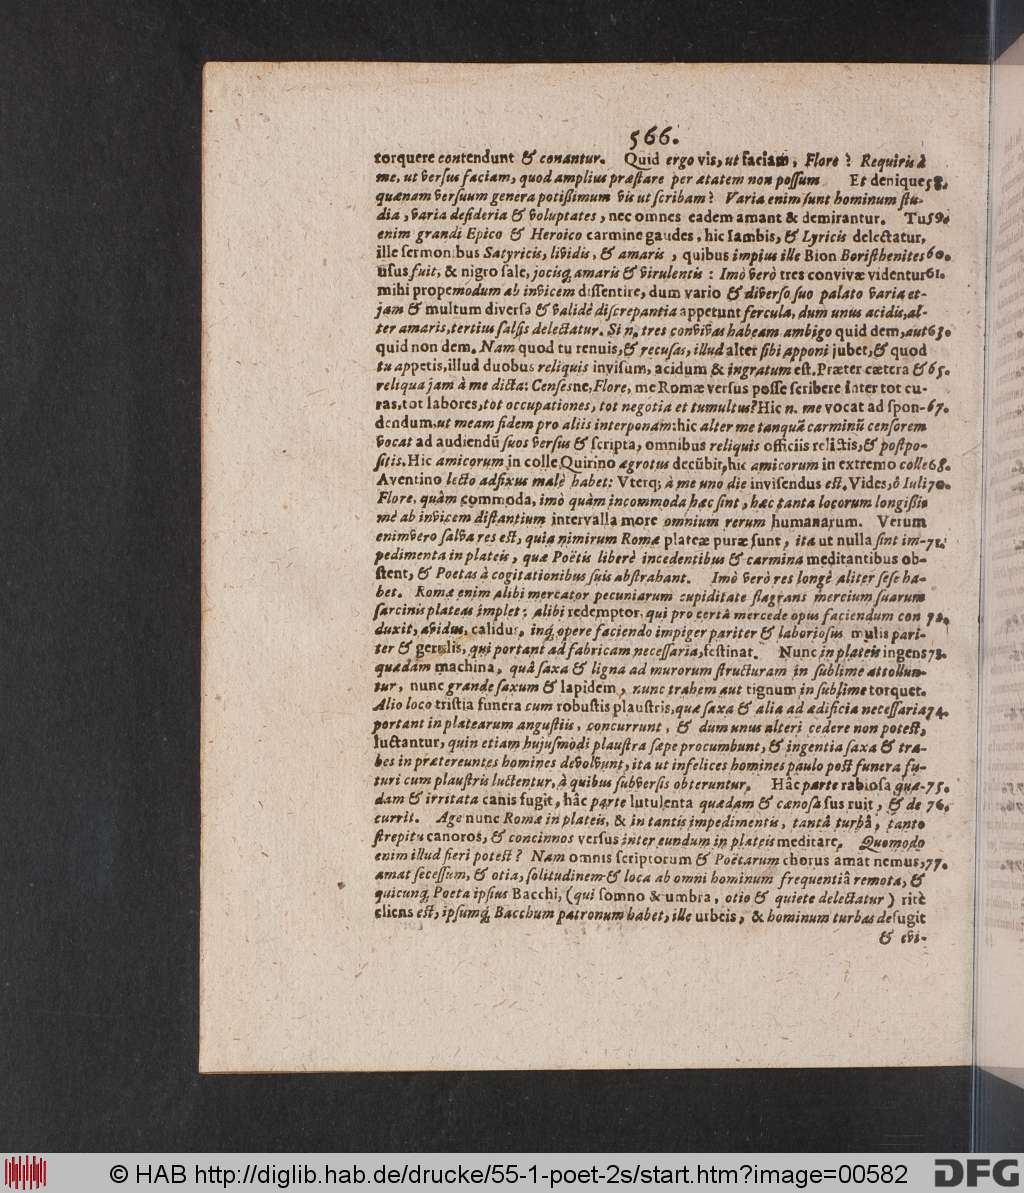 566.
torquere contendunt & conantur. Quid ergo vis, ut faciam, Flore? Requiris à
me, ut versus faciam, quod amplius præstare per ætatem non possum Et denique 58.
quænam versuum genera potißimum vis ut scribam? Varia enim sunt hominum stu-
dia, varia desideria & voluptates, nec omnes eadem amant & demirantur. Tu 59.
enim grandi Epico & Heroico carmine gaudes, hic Iambis, & Lyricis delectatur,
ille sermonibus Satyricis, lividis, & amaris, quibus impius ille Bion Boristhenites 60.
usus fuit, & nigro sale, jocisq; amaris & virulentis: Imò verò tres convivæ videntur 61.
mihi propemodum ab invicem dissentire, dum vario & diverso suo palato varia et-
jam & multum diversa & validè discrepantia appetunt fercula, dum unus acidis, al-
ter amaris, tertius salsis delectatur. Si n. tres convivas habeam ambigo quid dem, aut 63.
quid non dem. Nam quod tu renuis, & recusas, illud alter sibi apponi jubet, & quod
tu appetis, illud duobus reliquis invisum, acidum & ingratum est. Præter cætera & 65.
reliqua jam à me dicta: Censesne, Flore, me Romæ versus posse scribere inter tot cu-
ras, tot labores, tot occupationes, tot negotia et tumultus? Hic n. me vocat ad spon- 67.
dendum, ut meam fidem pro aliis interponam: hic alter me tanquã carminũ censorem
vocat ad audiendũ suos versus & scripta, omnibus reliquis officiis relictis, & postpo-
sitis. Hic amicorum in colle Quirino ægrotus decũbit, hic amicorum in extremo colle 68.
Aventino lecto adfixus malè habet: Uterq; à me uno die invisendus est. Vides, ô Iuli 70.
Flore, quàm commoda, imò quàm incommoda hæc sint, hæc tanta locorum longißi-
mè ab invicem distantium intervalla more omnium rerum humanarum. Verum
enimvero salva res est, quia nimirum Romæ plateæ puræ sunt, ita ut nulla sint im- 71.
pedimenta in plateis, quæ Poëtis liberè incedentibus & carmina meditantibus ob-
stent, & Poetas à cogitationibus suis abstrahant. Imò verò res longè aliter sese ha-
bet. Romæ enim alibi mercator pecuniarum cupiditate flagrans mercium suarum
sarcinis plateas implet: alibi redemptor, qui pro certâ mercede opus faciendum con 72.
duxit, avidus, calidus, inq; opere faciendo impiger pariter & laboriosus mulis pari-
ter & gerulis, qui portant ad fabricam necessaria, festinat. Nunc in plateis ingens 73.
quædam machina, quâ saxa & ligna ad murorum structuram in sublime attollun-
tur, nunc grande saxum & lapidem, nunc trabem aut tignum in sublime torquet.
Alio loco tristia funera cum robustis plaustris, quæ saxa & alia ad ædificia necessaria 74.
portant in platearum angustiis, concurrunt, & dum unus alteri cedere non potest,
luctantur, quin etiam hujusmodi plaustra sæpe procumbunt, & ingentia saxa & tra-
bes in prætereuntes homines devolvunt, ita ut infelices homines paulo post funera fu-
turi cum plaustris luctentur, à quibus subversis obteruntur. Hâc parte rabiosa quæ- 75.
dam & irritata canis fugit, hâc parte lutulenta quædam & cænosa sus ruit, & de 76.
currit. Age nunc Romæ in plateis, & in tantis impedimentis, tantâ turbâ, tanto
strepitu canoros, & concinnos versus inter eundum in plateis meditare. Quomodo
enim illud fieri potest? Nam omnis scriptorum & Poëtarum chorus amat nemus, 77.
amat secessum, & otia, solitudinem & loca ab omni hominum frequentiâ remota, &
quicunq; Poeta ipsius Bacchi, (qui somno & umbra, otio & quiete delectatur) ritè
cliens est, ipsumq; Bacchum patronum habet, ille urbeis, & hominum turbas defugit
& evi-
© HAB http://diglib.hab.de/drucke/55-1-poet-2s/start.htm?image=00582
DFG